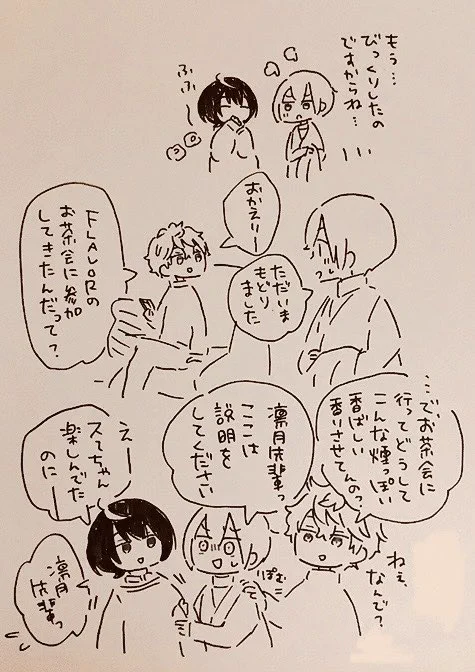 もう…
びっくりしたの
ですからね…
ふふ
ふ〜
おかえりー
ただいま
もどり
ました
FLAVORの
お茶会に参加
してきたんだって？
…で、お茶会に
行ってどうして
こんな煙っぽい
香ばしい
香りさせてんの？
ねぇ、
なんで？
凛月先輩っ
ここは
説明を
してください
ぽむ
えー
スーちゃん
楽しんでた
のにー
凛月
先輩っ